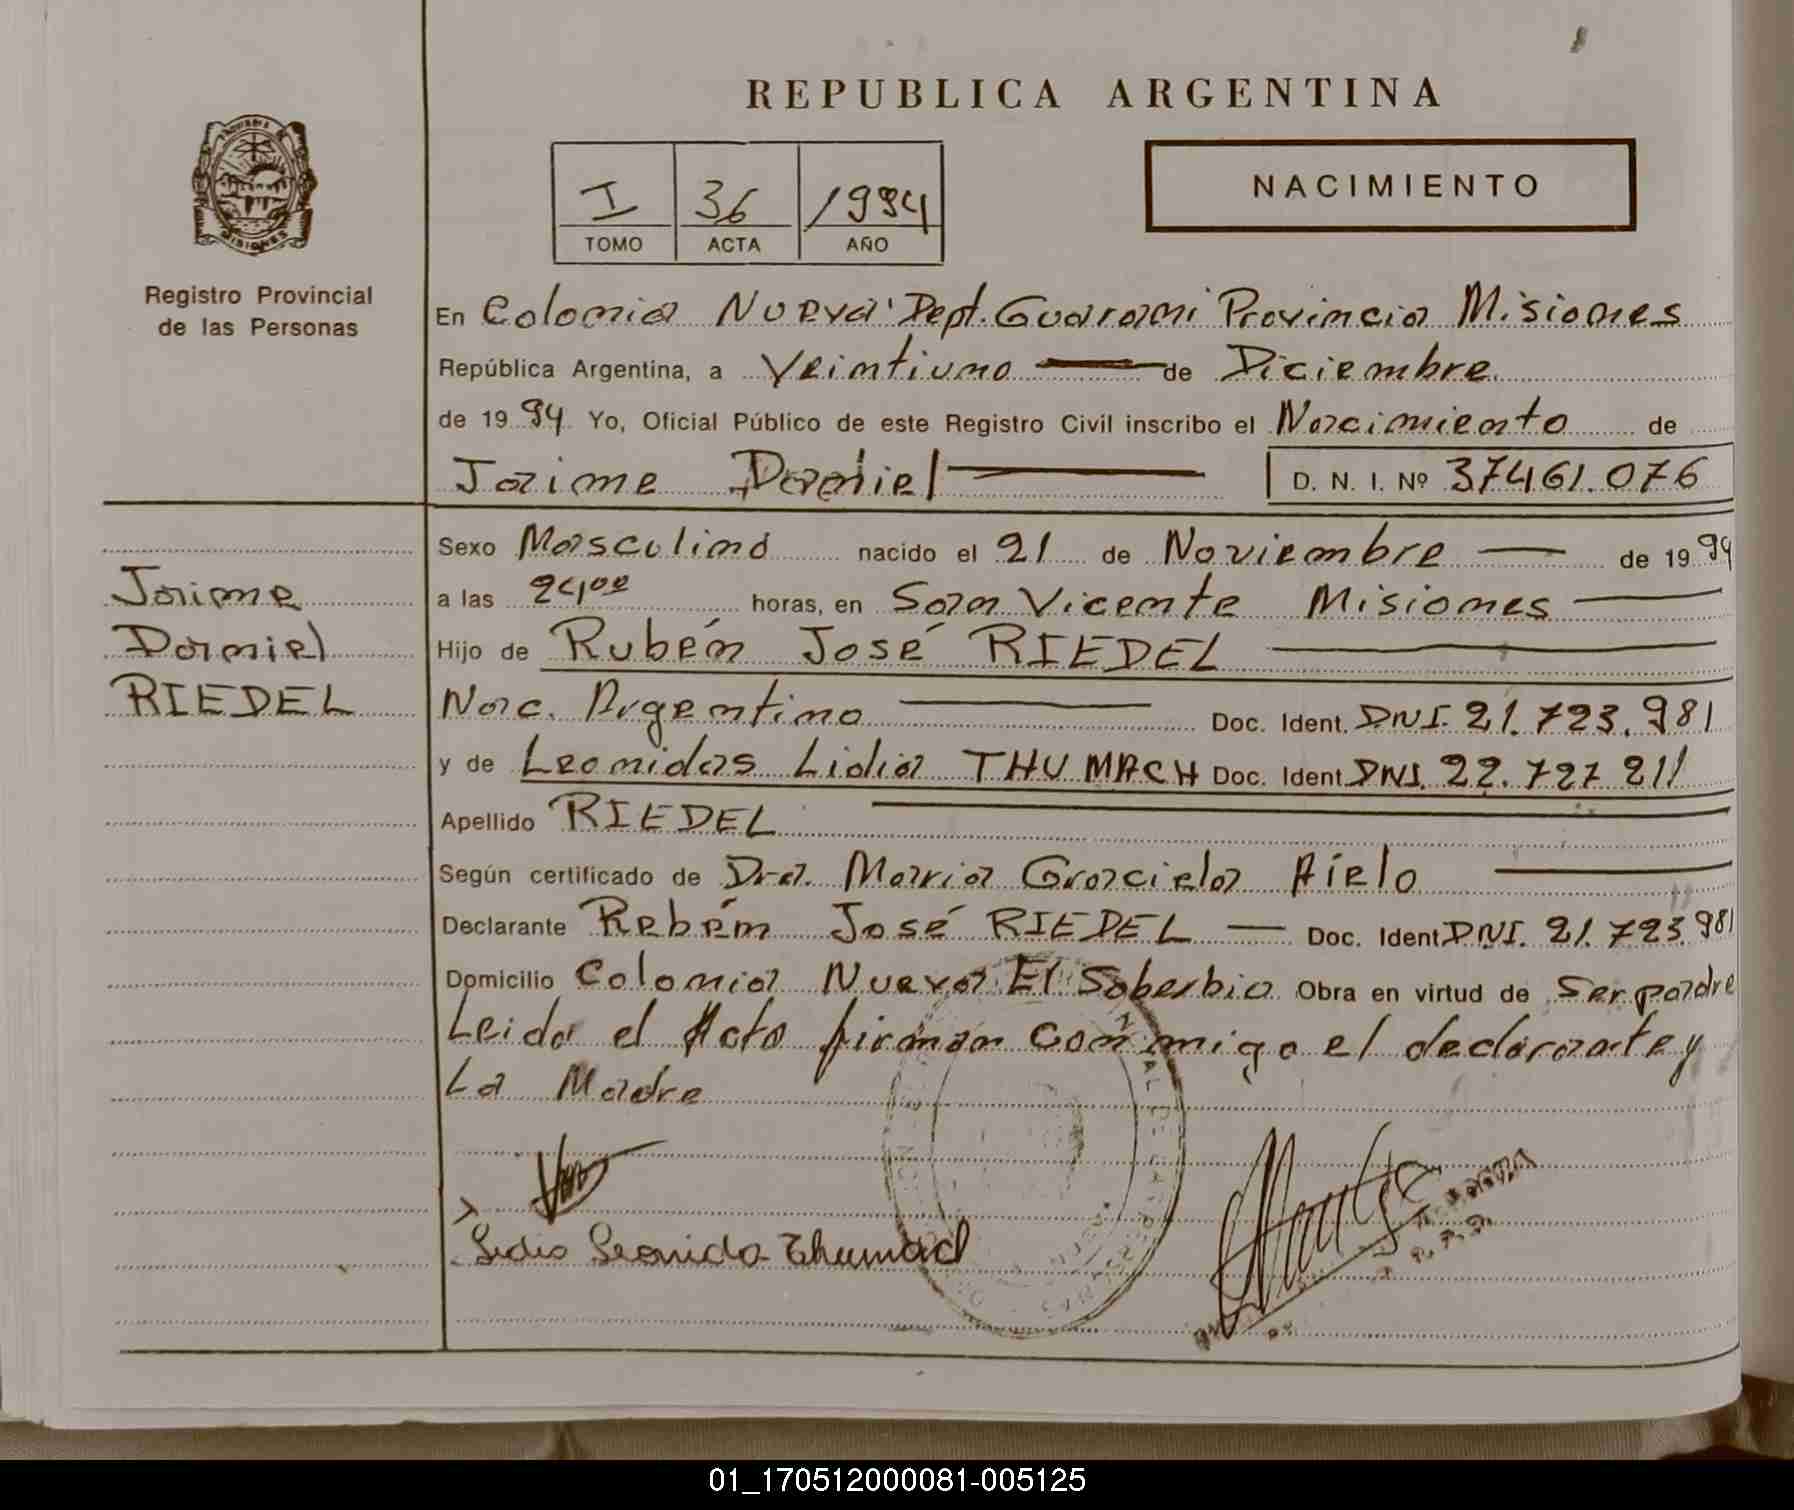 REPUBLICA ARGENTINA
MISIONES
Registro Provincial
de las Personas
I 36 1994
TOMO ACTA AÑO
NACIMIENTO
En Colonia Nueva Dept. Guarani Provincia Misiones
República Argentina, a Veintiuno — de Diciembre
de 1994 Yo, Oficial Público de este Registro Civil inscribo el Nacimiento de
Jaime Daniel — D. N. I. Nº 37461.076
Jaime
Daniel
RIEDEL
Sexo Masculino nacido el 21 de Noviembre — de 1994
a las 24,00 horas, en San Vicente Misiones —
Hijo de Rubén José RIEDEL —
Nac. Argentino — Doc. Ident. DNI. 21.723.981
y de Leonidas Lidia THUMACH Doc. Ident. DNI. 22.727 211
Apellido RIEDEL —
Según certificado de Dra. Maria Graciela Aielo —
Declarante Rebén José RIEDEL — Doc. Ident DNI. 21.723.981
Domicilio Colonia Nueva El Soberbio Obra en virtud de Ser padre
Leida el Acta firman conmigo el declarante y
La Madre
Lidia Leonida Thumach
01_170512000081-005125